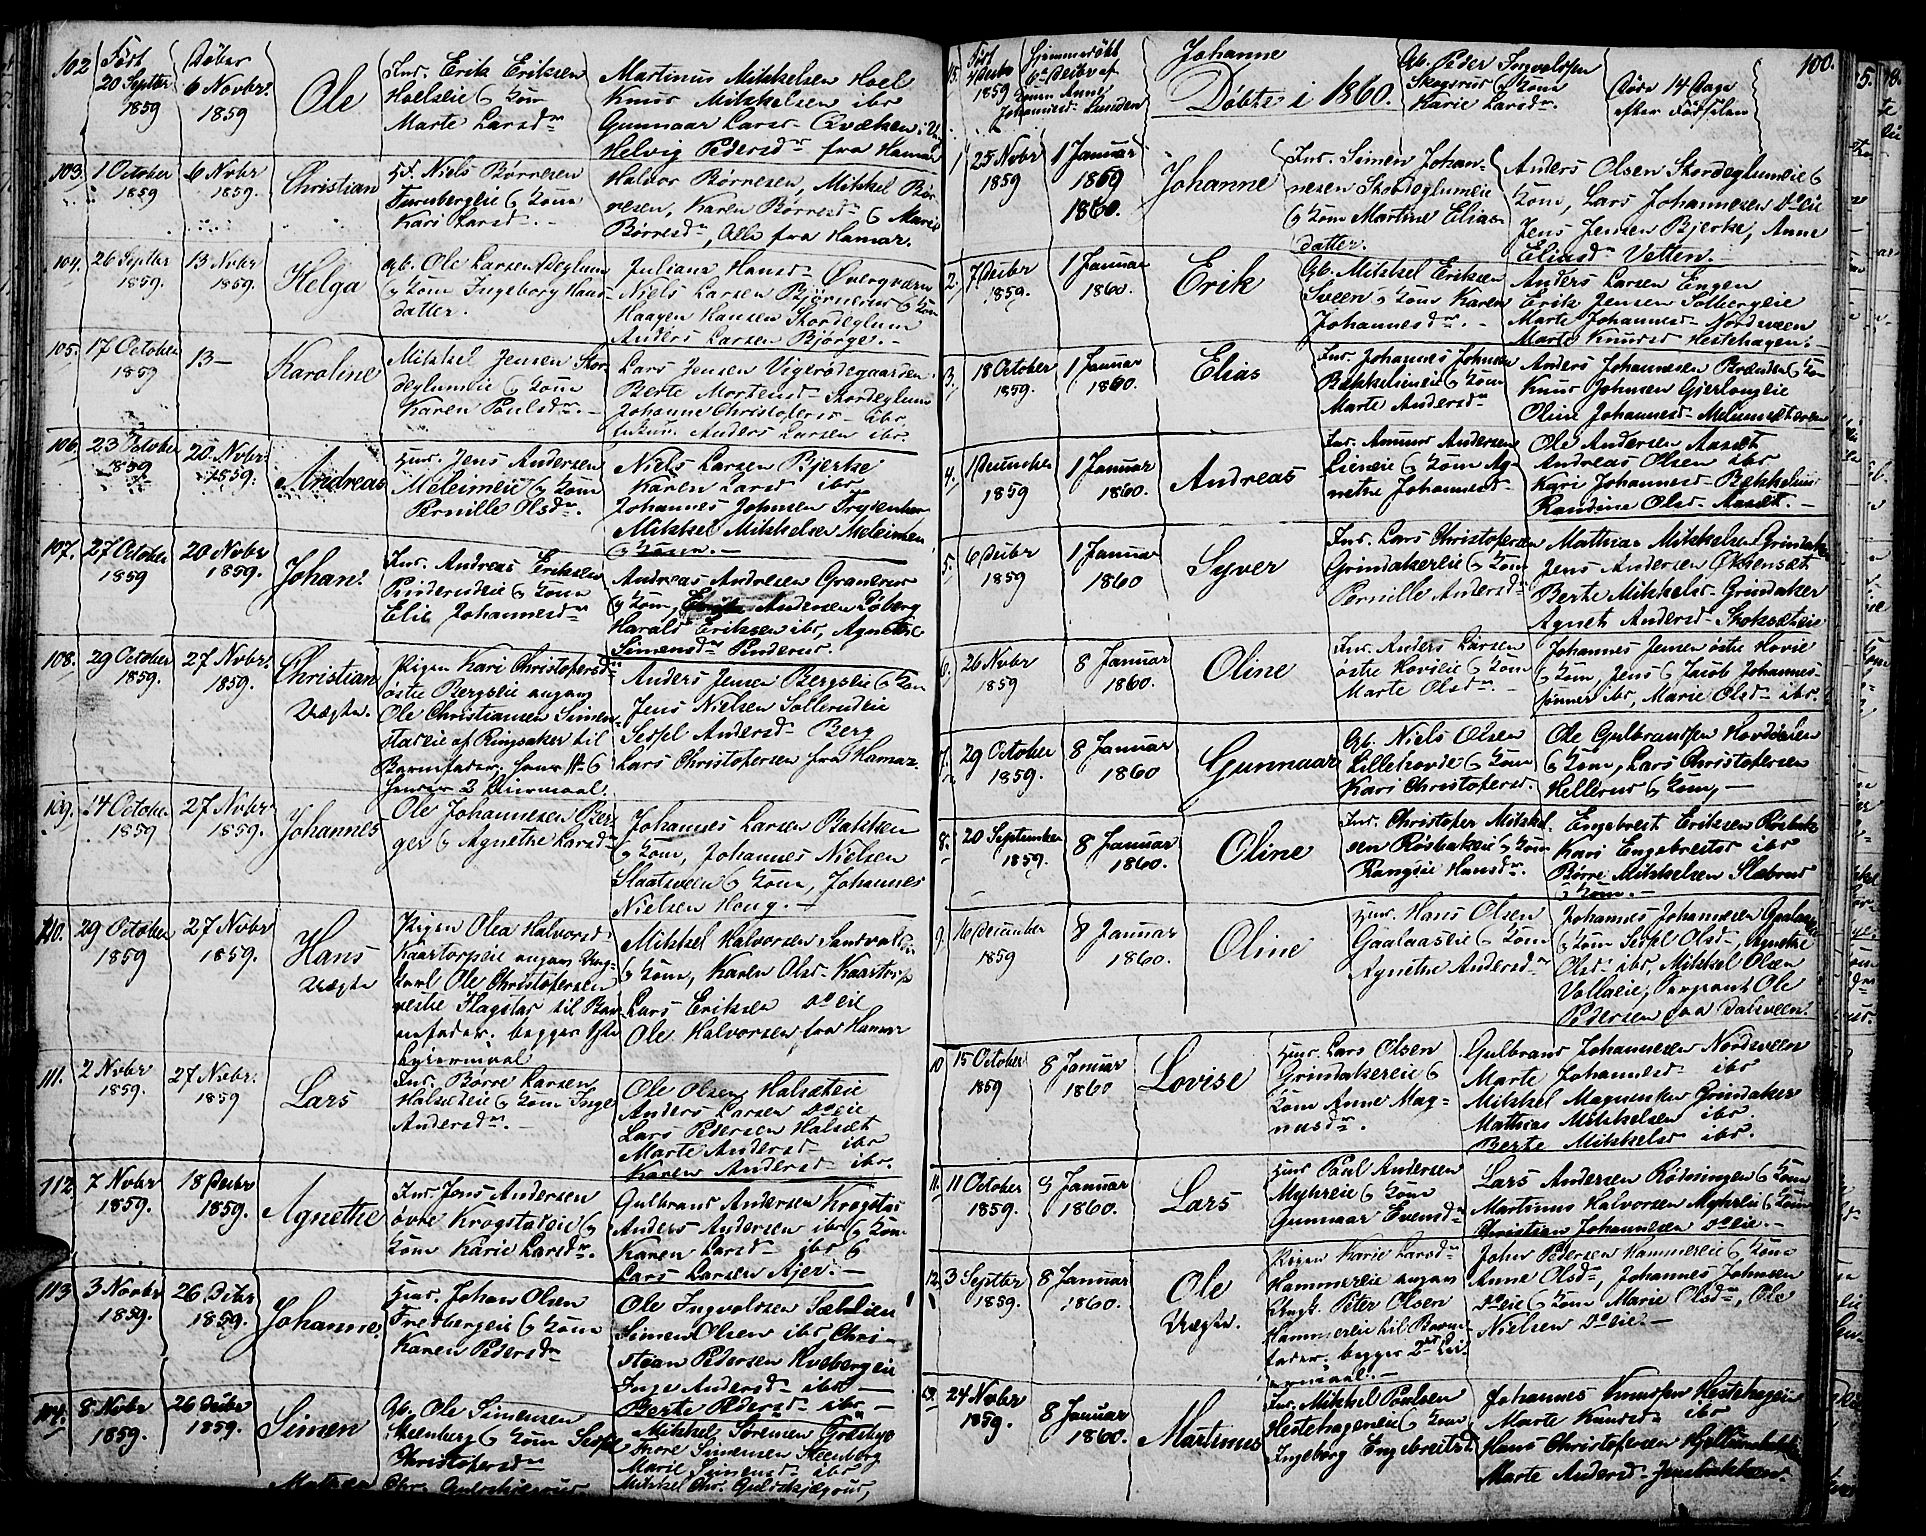 102
Født
20 Septbr
1859
Døber
6 Novbr.
1859
Ole
Ins. Erik Eriksen
Hoelseie & Kone
Marte Larsdr
Martinus Mikkelsen Hoel
Knus Mikkelsen ibr
Gunnaar Larsd-
Helvig Pedersdr fra Hamar
103.
1 October
1859
6 Nvbr
1859.
Christian
Hd. Niels Børresen
Furubergeie & Kone
Kari Larsdr. -
Halvor Børresen, Mikkel Bør-
resen, Karen Børresdr & Marie
Børresdr, Alle fra Hamar.
104.
26 Septbr
1859.
13 Nvbr
1859.
Helga
Gb. Ole Larsen
& Kone Ingeborg Hans
datter.
Juliane Hansd-
Niels Larsen Bjørnerud & Kone
Haagen Hansen Skordeglum
Anders Larsen Bjørge. -
105.
17 October
1859
13 -
Karoline
Mikkel Jensen Skor
deglumeie & Kone
Karen Paulsdr. -
Lars Jensen Vigerødegaarden
Berte Mortensd- Skordeglum
Johanne Christofersd- ibr
Anders Larsen ibr.
106.
23 October
1859
20 Nvbr.
1859.
Andreas
Hus. Jens Andersen
Meleimeie & Kone
Pernille Olsdr.
Niels Larsen Bjerke
Karen Larsd ibr
Johannes Johnsen
Mikkel Mikkelsen Meleimen
& Kone. -
107.
27 October
1859
20 Nvbr
1859.
Johan.
Ins. Andreas Eriksen
Pinderudeie & Kone
Elie Johannesdr
Andreas Andresen Granerud
& Kone, Andersen Røberg
Harald Eriksen ibr, Agnethe
Simensdr Pinderud.
108.
29 October
1859.
27 Nvbr.
1859.
Christian
Uægte.
Pigen Kari Christofersdr
østre Bergseie angav
Ole Christiansen Simen-
stadeie af Ringsaker til
Barnefader.
2 Leiermaal.
Anders Jensen Bergseie & Kone
Jens Nielsen Sollerudeie
Sespel Andersd- Berg
Lars Christofersen fra Hamar.
109.
14 October
1859
27 Nvbr
1859.
Johannes
Ole Johannesen Ber-
ger & Agnethe Larsdr
Johannes Larsen Bakken
& Kone, Johannes Nielsen
Slaatsveen & Kone, Johannes
Nielsen Houg. -
110.
29 October
1859
27 Nvbr
1859.
Hans
Uægte
Pigen Olea Halvorsd-
Kaartorpeie angav Ung-
karl Ole Christofersen
vestre Flagstad til Bar-
nefader. begges 1ste
Leiermaal
Mikkel Halvorsen Sandvold
& Kone, Karen Olsd- Kaartorp
Lars Eriksen Doeie
Ole Halvorsen fra Hamar
111.
2 Nvbr
1859.
27 Nvbr.
1859
Lars
Ins. Børre Larsen
Halseteie & Kone Inge
Andersdr. -
Ole Olsen Halseteie
Anders Larsen Doeie
Lars Pedersen Halsæt
Marte Andersd ibr
Karen Andersd- ibr.
112.
7 Nvbr
1859.
18 Decbr
1859.
Agnethe
Ins. Jens Andersen
øvre Krogstadeie &
Kone Karie Larsdr.
Gulbrand Andersen Krogstad
Anders Andersen ibr & Kone
Karen Larsd- ibr &
Lars Larsen Ajer. -
113
3 Novbr
1859.
26 Debr
1859.
Johanne.
Hus. Johan Olsen
Fredbergeie & Kone
Karen Pedersdr
Ole Ingvolsen Sælilien
Simen Olsen ibr Chri-
stian Pedersen Kvebergeie
Inge Andersd- ibr -
Berte Pedersd- ibr. -
114.
8 Nvbr
1859.
26 Decbr
1859.
Simen
Gb. Ole Simensen
Steenberg & Kone Sespel
Christofersdr
Mikkel Sørensen
Thore Simensen Steenberg
Marie Simensd- ibr
Mikkel Chr. Gulskjegrud,
15.
Født
4 Decbr
1859
Hjemmedøbt
6te Decbr af
Konen Anne
Johannesd- Lunden
Johanne
Gb. Peder Ingvolsen
Skogsrud & Kone
Marie Larsdr
Døde 14 Dage
efter Fødselen
100.
Døbte i 1860.
1
25 Nvbr
1859
1 Januar
1869
1860.
Johanne
Ins. Simen Johan-
nesen Skordeglumeie
& Kone Martine Elias-
datter.
Anders Olsen Skordeglumeie &
Kone, Lars Johannesen Doeie
Jens Jensen Bjerke, Anne
Eliasd- Vetten. -
2.
7 Decbr
1859.
1 Januar
1860.
Erik
Gb. Mikkel Eriksen
Sveen & Kone Karen
Johannesdr. -
Anders Larsen Engen
Erik Jensen Solbergeie
Marte Johannesd- Nordsveen
Marte Knudsd Hestehagen.
3.
18 October
1859.
1 Januar
1860.
Elias
Ins. Johannes Johnsen
Bækkelieneie & Kone
Marte Andersdr
Anders Johannesen Brænden & Kone
Knud Johnsen Gjerlougeie
Oline Johannesd-
4.
1 December
1859
1 Januar
1860.
Andreas
Ins. Amund Andersen
Lieneie & Kone Ag-
nethe Johannesd-
Ole Andersen Aasæt
Andreas Olsen ibr
Kari Johannesd- Bækkeliend
Randine Olsd- Aasæt. -
5.
6 Decbr
1859
1 Januar
1860
Syver
Ins. Lars Christofersen
Grindakereie & Kone
Pernille Andersdr
Mathias Mikkelsen Grindaker
Jens Andersen Oksensæt
Berte Mikkelsd- Grindaker
Agnet Andersd- Skoksæteie
6.
26 Nvbr
1859
8 Januar
1860.
Oline
Ins. Anders Larsen
østre Hovieie & Kone
Marte Olsdr. -
Johannes Jensen østre Hovie
& Kone, Jens & Jacob Johannes-
sønner ibr, Marie Olsd- ibr.
7.
29 October
1859.
8 Januar
1860
Gunnaar
Gb. Niels Olsen
Lillehovde & Kone
Kari Christofersd.
Ole Gulbrandsen Hovdelien
& Kone, Lars Christofersen
Hellerud & Kone, -
8.
20 September
1859.
8 Januar
1860.
Oline
Ins. Christofer Mikkel-
sen Røsbakeie & Kone
Rangdie Hansdr.
Engebreth Eriksen Røsbak
Kari Engebretsd ibr
Børre Mikkelsen Slabrud
& Kone. -
9.
16 December
1859
8 Januar
1860.
Oline
Hus. Hans Olsen
Gaalaaseie & Kone
Agnethe Andersdr
Johannes Johannesen Gaalaas
& Kone Sespel Olsd-, Agnethe
Olsd- ibr, Mikkel Olsen
Vollaeie, Sergeant Ole
Pedersen paa Dalsveen.
10
15 October
1859
8 Januar
1860
Lovise
Hus. Lars Olsen
Grindakereie &
Kone Anne Mag-
nusdr.
Gulbrand Johannesen Nordsveen
Marte Johannesd- ibr
Mikkel Magnusen Grindaker
Mathias Mikkelsen ibr.
Berte Mikkelsd ibr.
11.
11 October
1859.
9 Januar
1860.
Lars
Hus Paul Andersen
Myhreie & Kone
Gunnaar Evensdr
Lars Andersen Rødningen & Kone
Martinus Halvorsen Myhreie & Kone
Christian Johannesen Doeie. -
12.
3 Septbr
1859.
8 Januar
1860.
Ole
Uægte.
Pigen Karie Larsdr
Hammereie angav
Ungk. Peter Olsen
Hammereie til Barne-
fader. begges 2det Lei-
ermaal. -
John Pedersen Hammereie & Kone
Anne Olsdr, Johannes Johnsen
Doeie & Kone Marie Olsdr, Ole
Nielsen Doeie. -
13.
24 Nvbr
1859.
8 Januar
1860.
Martinus
Ins. Mikkel Paulsen
Hestehageneie & Kone
Ingeborg Engebretsd
Johannes Knudsen Hestehageneie
Marte Knudsd- ibr
Hans Christofersen
Marte Andersd-